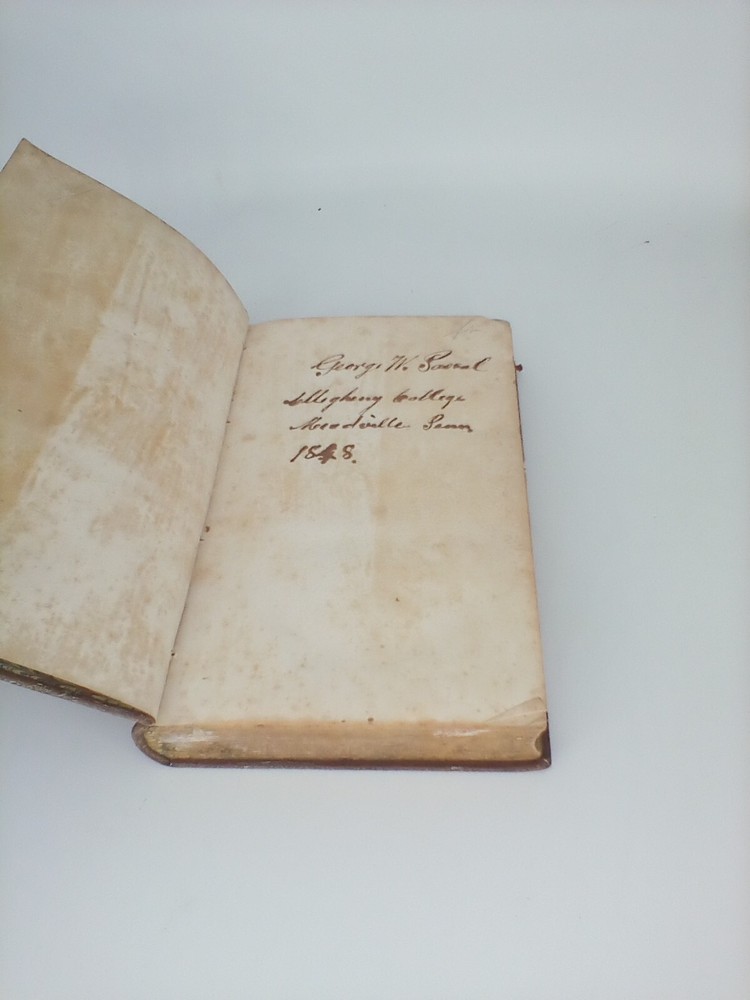 George W.
Allegheny College
Meadville Penn
1848.